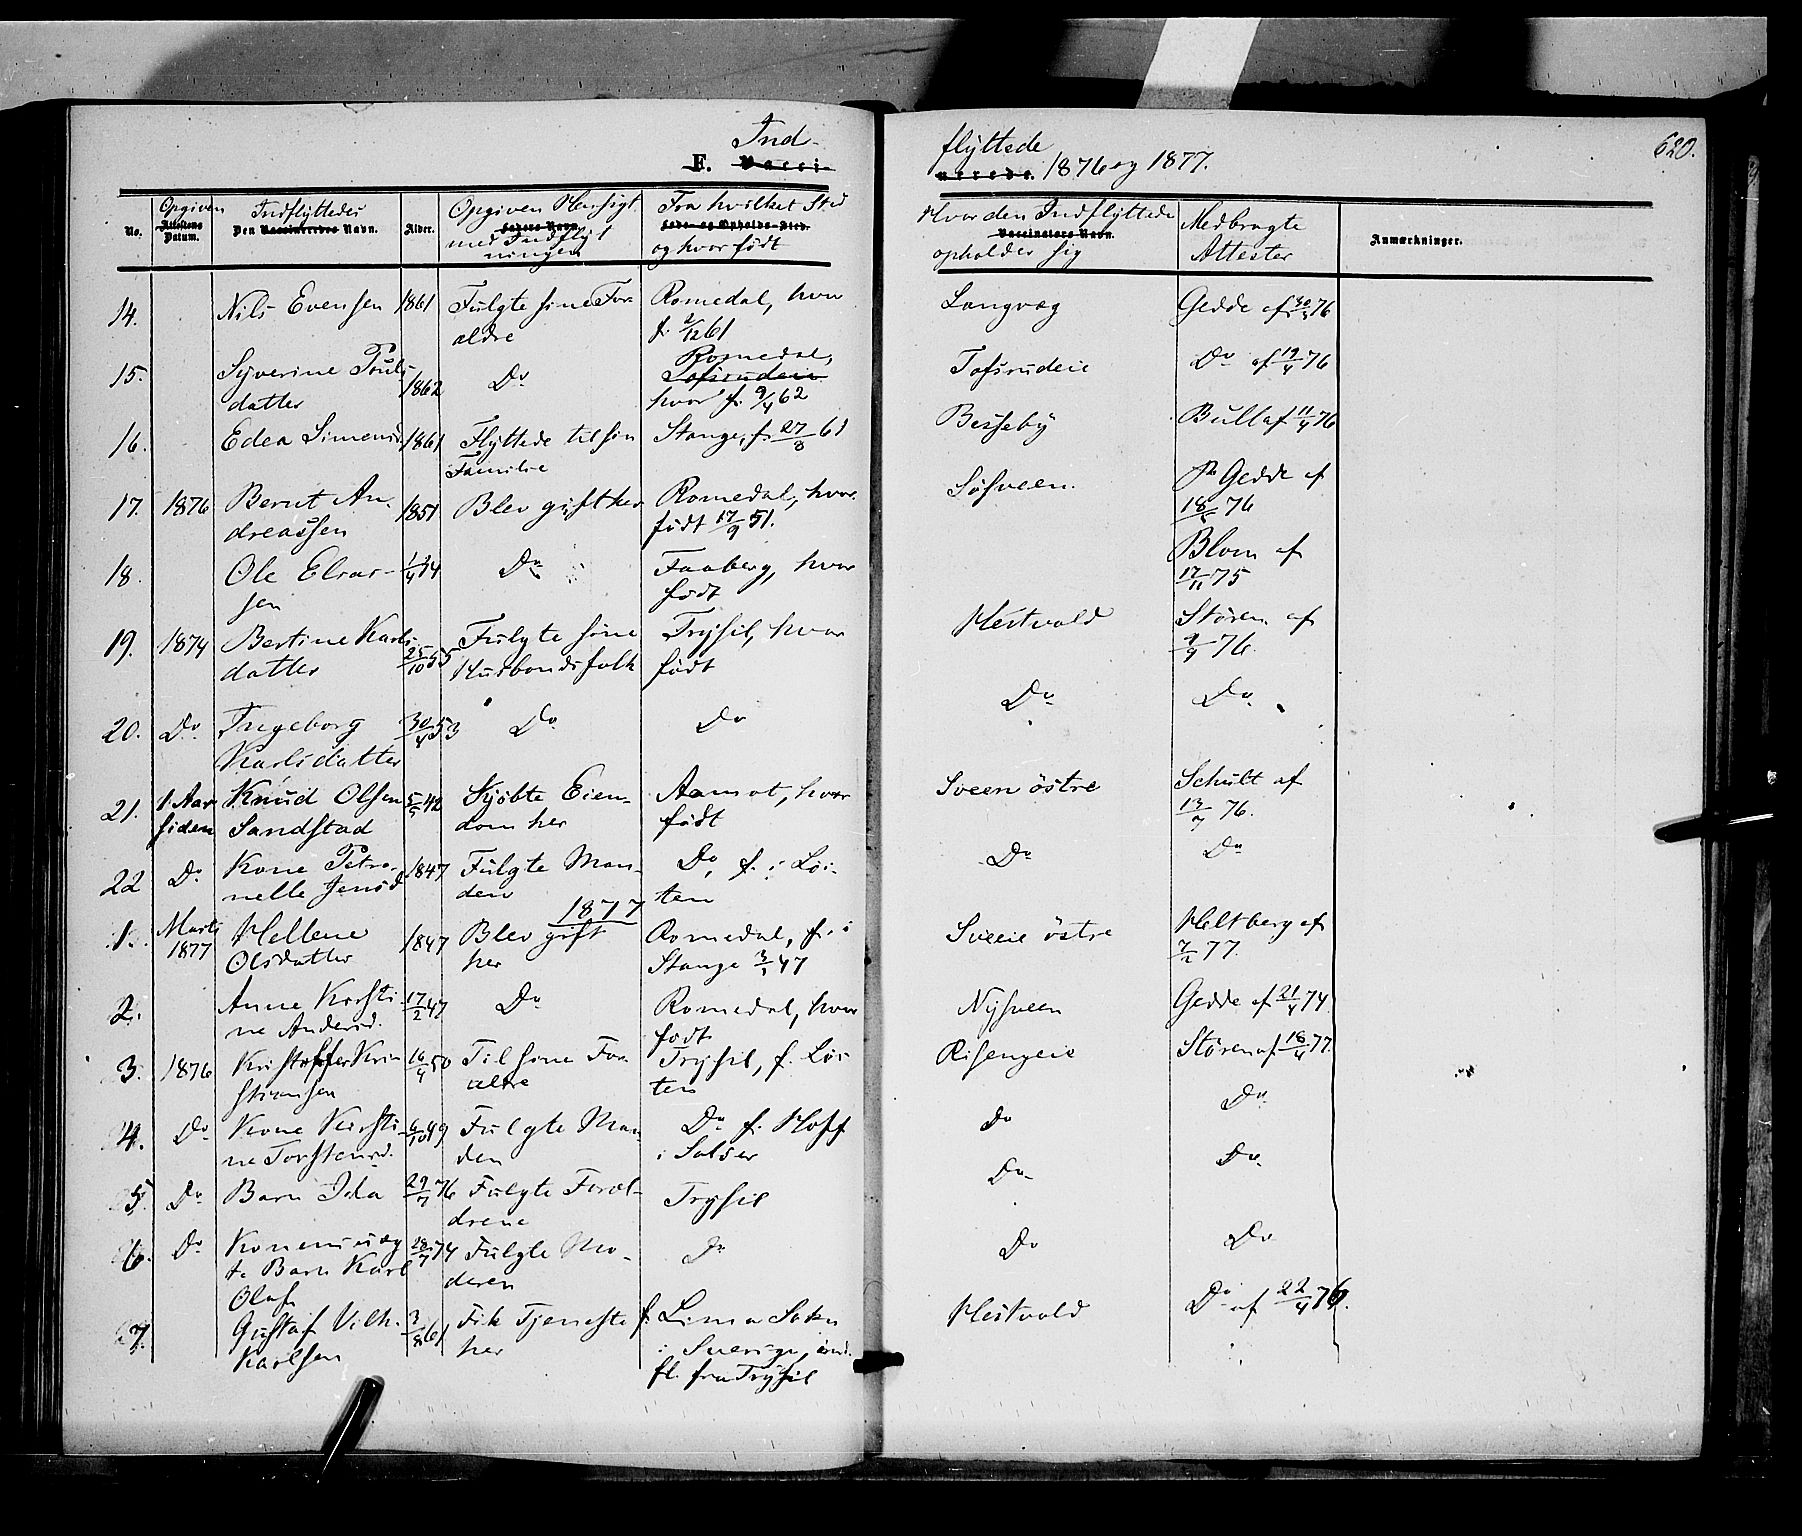 Ind- flyttede
F. Vacci- nerede. 1876 og 1877.
620.
No. | Opgiven Attestens Datum. | Indflyttedes Den Vaccineredes Navn. | Alder. | Opgiven Hensigt Faders Navn med Indflytningen | Fra hvilket Sted Føde- og Opholds-Sted. og hvor født | Hvor den Indflyttede Vaccinators Navn. opholder sig | Medbragte Attester | Anmærkninger.
14. | Nils Evensen | 1861 | Fulgte sine For- ældre | Romedal, hvor f. 2/12 61 | Langvag | Gedde af 76
15. | Syverine Pouls- datter | 1862 | Do | Romedal, Tofsrudeie hvor f. 9/4 62 | Tofsrudeie | Do af 19/4 76
16. | Edea Simensd | 1861 | Flyttede til sin Familie | Stange, f. 27/8 61 | Besseby | Bull af 11/4 76
17. | 1876 | Bernt An- dreassen | 1851 | Blev gift her | Romedal, hvor født 17/9 51. | Søsveen. | Gedde af 18/5 76
18. | Ole Elias- sen | Do | Faaberg, hvor født | Blom af 17/11 75
19. | 1874 | Bertine Karls- datter | 25/10 55 | Fulgte sine Husbondsfolk | Trysil, hvor født | Hestvold | Støren af 9/9 76.
20. | Do | Ingeborg Karlsdatter | 30/4 53 | Do | Do | Do | Do
21. | 1 Aar siden | Knud Olsen Sandstad | 5/5 42 | Kjøbte Eien- dom her | Aamot, hvor født | Sveen østre | Schult af 13/7 76.
22 | Do | Kone Petro- nelle Jensd | 1847 | Fulgte Man- den | Do, f. i Løi- ten | Do | Do
1877
1. | Marts 1877 | Hellene Olsdatter | 1847 | Blev gift her | Romedal, f. i Stange 3/1 47 | Sveeie østre | Heltberg af 7/2 77.
2. | Anne Kirsti- ne Andersd. | 17/2 47 | Do | Romedal, hvor født | Nysveen | Gedde af 21/4 74
3. | 1876 | Kristoffer Kri- stiansen | 16/4 50 | Til sine For- ældre | Trysil, f. Løi- ten | Risengeie | Støren af 18/4 77.
4. | Do | Kone Kirsti- ne Torstensd. | 6/10 49 | Fulgte Man- den | Do f. Hoff i Solør | Do | Do
5. | Do | Barn Ida | 29/7 76 | Fulgte Foræl- drene | Trysil | Do | Do
6. | Do | Konens uæg- te Barn Karl Olaf | 28/7 74 | Fulgte Mo- deren | Do | Do | Do
7. | Gustaf Vilh. Karlsen | 3/8 61 | Fik Tjeneste her | f. Lima Sokn i Sverige, ind. fl. fra Trysil | Hestvold | Do af 22/4 76.